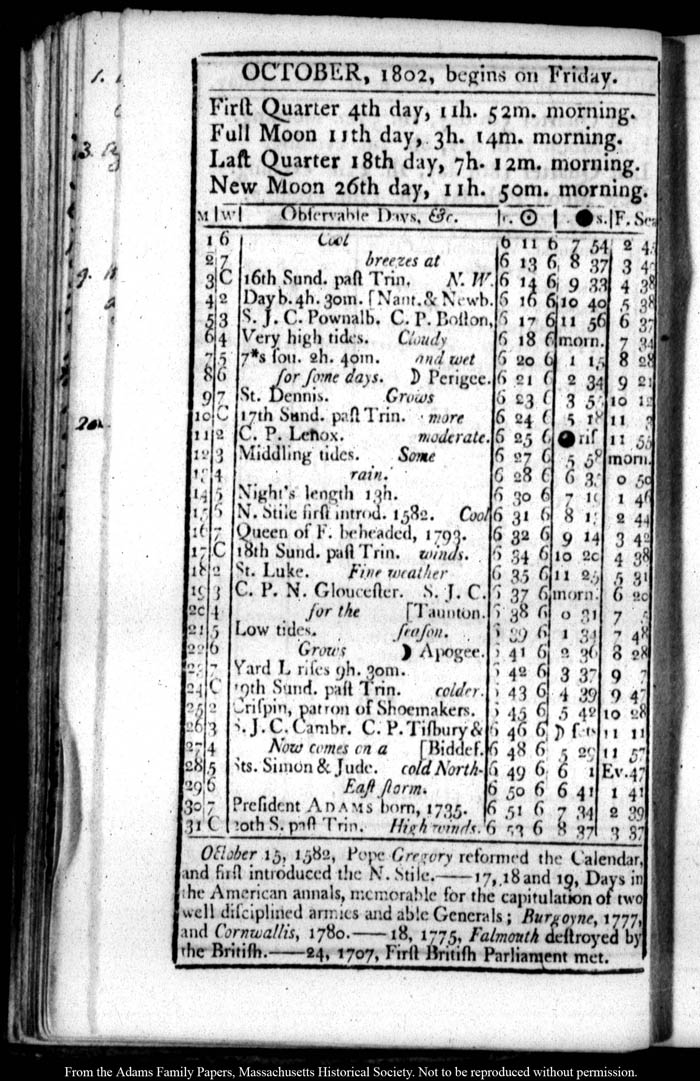 OCTOBER, 1802, begins on Friday.
Firſt Quarter 4th day, 11h. 52m. morning.
Full Moon 11th day, 3h. 14m. morning.
Laſt Quarter 18th day, 7h. 12m. morning.
New Moon 26th day, 11h. 50m. morning.
M W Obſervable Days, &c. r. ☉ ●s. F. Sea
1 6 Cool 6 11 6 7 54 2
2 7 breezes at 6 13 6 8 37 3
3 C 16th Sund. paſt Trin. N. W. 6 14 6 9 33 4 38
4 2 Day b. 4h. 30m. [Nant. & Newb. 6 16 6 10 40 5 38
5 3 S. J. C. Pownalb. C. P. Boſton, 6 17 6 11 56 6 37
6 4 Very high tides. Cloudy 6 18 6 morn. 7 34
7 5 7*s ſou. 2h. 40m. and wet 6 20 6 1 15 8 28
8 6 for ſome days. ☽ Perigee. 6 21 6 2 34 9 21
9 7 St. Dennis. Grows 6 23 6 3 10 12
10 C 17th Sund. paſt Trin. more 6 24 6 5 18 11
11 2 C. P. Lenox. moderate. 6 25 6 ● riſ 11 55
12 3 Middling tides. Some 6 27 6 5 58 morn.
4 rain. 6 28 6 6 0 50
14 5 Night's length 13h. 6 30 6 7 1 46
15 6 N. Stile firſt introd. 1582. Cool 6 31 6 8 2 44
16 7 Queen of F. beheaded, 1793. 6 32 6 9 14 3 42
17 C 18th Sund. paſt Trin. winds. 6 34 6 10 20 4 38
18 2 St. Luke. Fine weather 6 35 6 11 25 5 31
19 3 C. P. N. Glouceſter. S. J. C. 6 37 6 morn. 6 20
20 4 for the [Taunton. 6 38 6 0 31 7
21 5 Low tides. ſeaſon. 39 6 1 34 7 48
22 6 Grows ☽ Apogee. 41 6 2 36 8 28
7 Yard L riſes 9h. 30m. 42 6 3 37 9
24 C 19th Sund. paſt Trin. colder. 43 6 4 39 9 47
25 2 Criſpin, patron of Shoemakers. 45 6 5 42 10 28
26 3 S. J. C. Cambr. C. P. Tiſbury & 46 6 ☽ ſets 11 11
27 4 Now comes on a [Biddef. 6 48 6 5 29 11 57
28 5 Sts. Simon & Jude. cold North- 6 49 6 6 1 Ev. 47
29 6 Eaſt ſtorm. 6 50 6 6 41 1 41
30 7 Preſident ADAMS born, 1735. 6 51 6 7 34 2 39
31 C 20th S. paſt Trin. High winds. 6 53 6 8 37 3 37
October 15, 1582, Pope Gregory reformed the Calendar,
and firſt introduced the N. Stile.——17, 18 and 19, Days in
the American annals, memorable for the capitulation of two
well diſciplined armies and able Generals; Burgoyne, 1777,
and Cornwallis, 1780.——18, 1775, Falmouth deſtroyed by
the Britiſh.——24, 1707, Firſt Britiſh Parliament met.
From the Adams Family Papers, Massachusetts Historical Society. Not to be reproduced without permission.